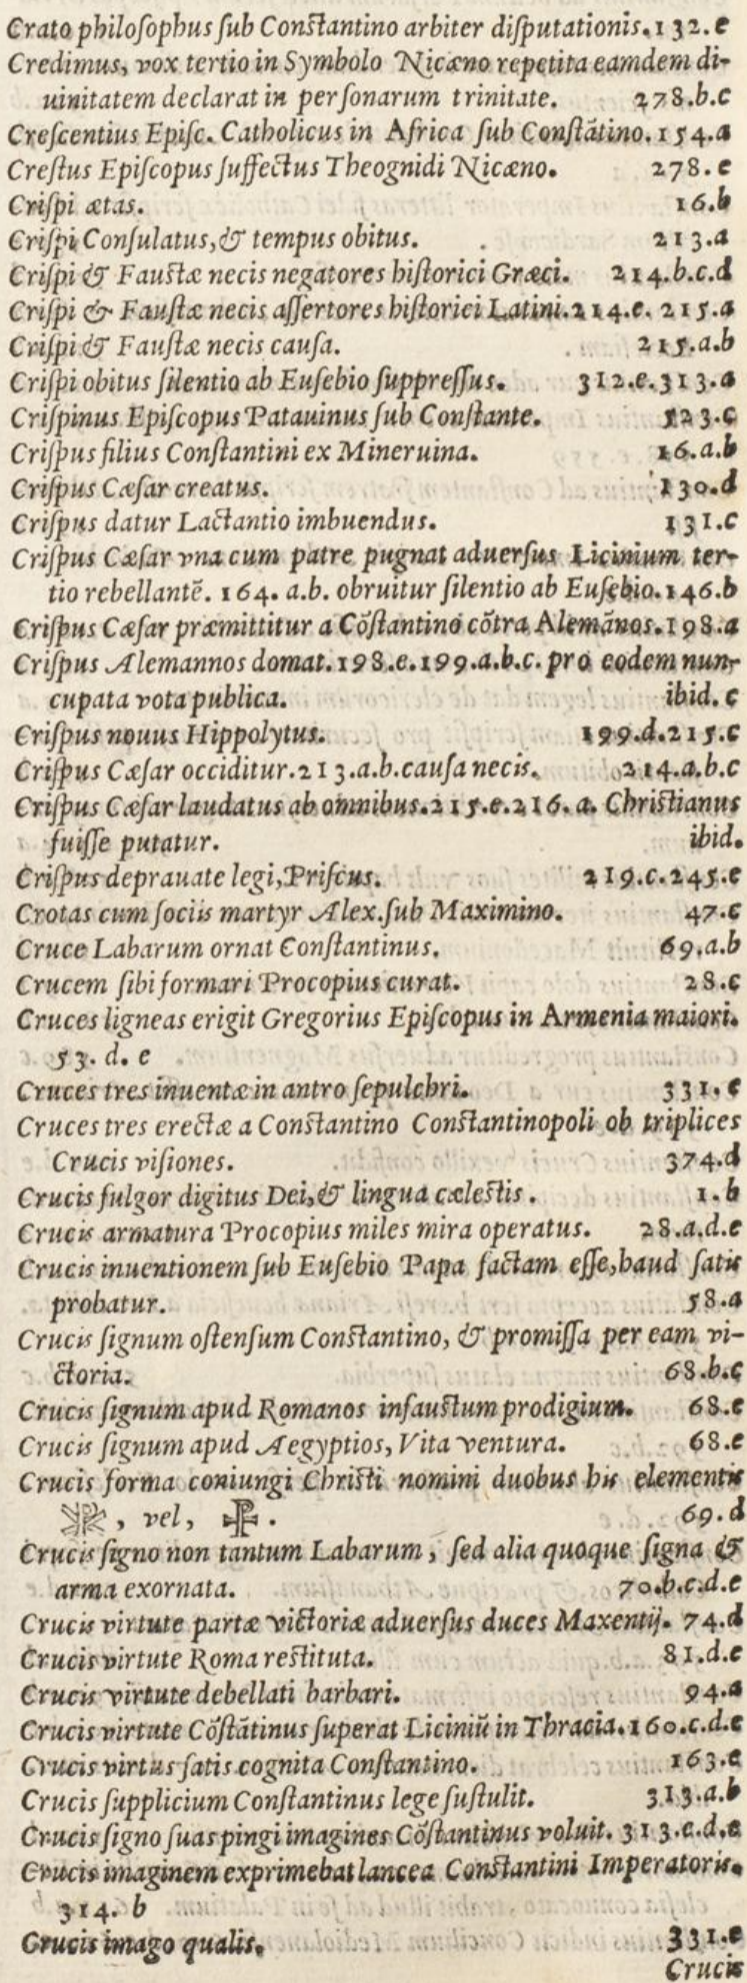 Crato philoſophus ſub Conſtantino arbiter diſputationis. 132.e
Credimus, vox tertio in Symbolo Nicæno repetita eamdem di-
uinitatem declarat in perſonarum trinitate. 278.b.c
Creſcentius Epiſc. Catholicus in Africa ſub Conſtãtino. 154.a
Creſtus Epiſcopus ſuffectus Theognidi Nicæno. 278.e
Criſpi ætas. 16.b
Criſpi Conſulatus, & tempus obitus. 213.a
Criſpi & Fauſtæ necis negatores hiſtorici Græci. 214.b.c.d
Criſpi & Fauſtæ necis aſſertores hiſtorici Latini. 214.e. 215.a
Criſpi & Fauſtæ necis cauſa. 215.a.b
Criſpi obitus ſilentio ab Euſebio ſuppreſſus. 312.e.313.a
Criſpinus Epiſcopus Patauinus ſub Conſtante. 523.c
Criſpus filius Conſtantini ex Mineruina. 16.a.b
Criſpus Cæſar creatus. 130.d
Criſpus datur Lactantio imbuendus. 131.c
Criſpus Cæſar vna cum patre pugnat aduerſus Licinium ter-
tio rebellantẽ. 164. a.b. obruitur ſilentio ab Euſebio. 146.b
Criſpus Cæſar præmittitur a Cõſtantino cõtra Alemãnos. 198.a
Criſpus Alemannos domat. 198.e.199.a.b.c. pro eodem nun-
cupata vota publica. ibid. c
Criſpus nouus Hippolytus. 199.d.215.c
Criſpus Cæſar occiditur. 213.a.b. cauſa necis. 214.a.b.c
Criſpus Cæſar laudatus ab omnibus. 215.e.216. a. Chriſtianus
fuiſſe putatur. ibid.
Criſpus deprauate legi, Priſcus. 219.c.245.e
Crotas cum ſociis martyr Alex. ſub Maximino. 47.c
Cruce Labarum ornat Conſtantinus. 69.a.b
Crucem ſibi formari Procopius curat. 28.c
Cruces ligneas erigit Gregorius Epiſcopus in Armenia maiori.
53. d. e
Cruces tres inuentæ in antro ſepulchri. 331.e
Cruces tres erectæ a Conſtantino Conſtantinopoli ob triplices
Crucis viſiones. 374.d
Crucis fulgor digitus Dei, & lingua cæleſtis. 1.b
Crucis armatura Procopius miles mira operatus. 28.a.d.e
Crucis inuentionem ſub Euſebio Papa factam eſſe, haud ſatis
probatur. 58.a
Crucis ſignum oſtenſum Conſtantino, & promiſſa per eam vi-
ctoria. 68.b.c
Crucis ſignum apud Romanos infauſtum prodigium. 68.e
Crucis ſignum apud Aegyptios, Vita ventura. 68.e
Crucis forma coniungi Chriſti nomini duobus his elementis
, vel, . 69.d
Crucis ſigno non tantum Labarum, ſed alia quoque ſigna &
arma exornata. 70.b.c.d.e
Crucis virtute partæ victoriæ aduerſus duces Maxentij. 74.d
Crucis virtute Roma reſtituta. 81.d.e
Crucis virtute debellati barbari. 94.a
Crucis virtute Cõſtãtinus ſuperat Liciniũ in Thracia. 160.c.d.e
Crucis virtus ſatis cognita Conſtantino. 163.e
Crucis ſupplicium Conſtantinus lege ſuſtulit. 313.a.b
Crucis ſigno ſuas pingi imagines Cõſtantinus voluit. 313.c.d.e
Crucis imaginem exprimebat lancea Conſtantini Imperatoris.
314. b
Crucis imago qualis. 331.e
Crucis